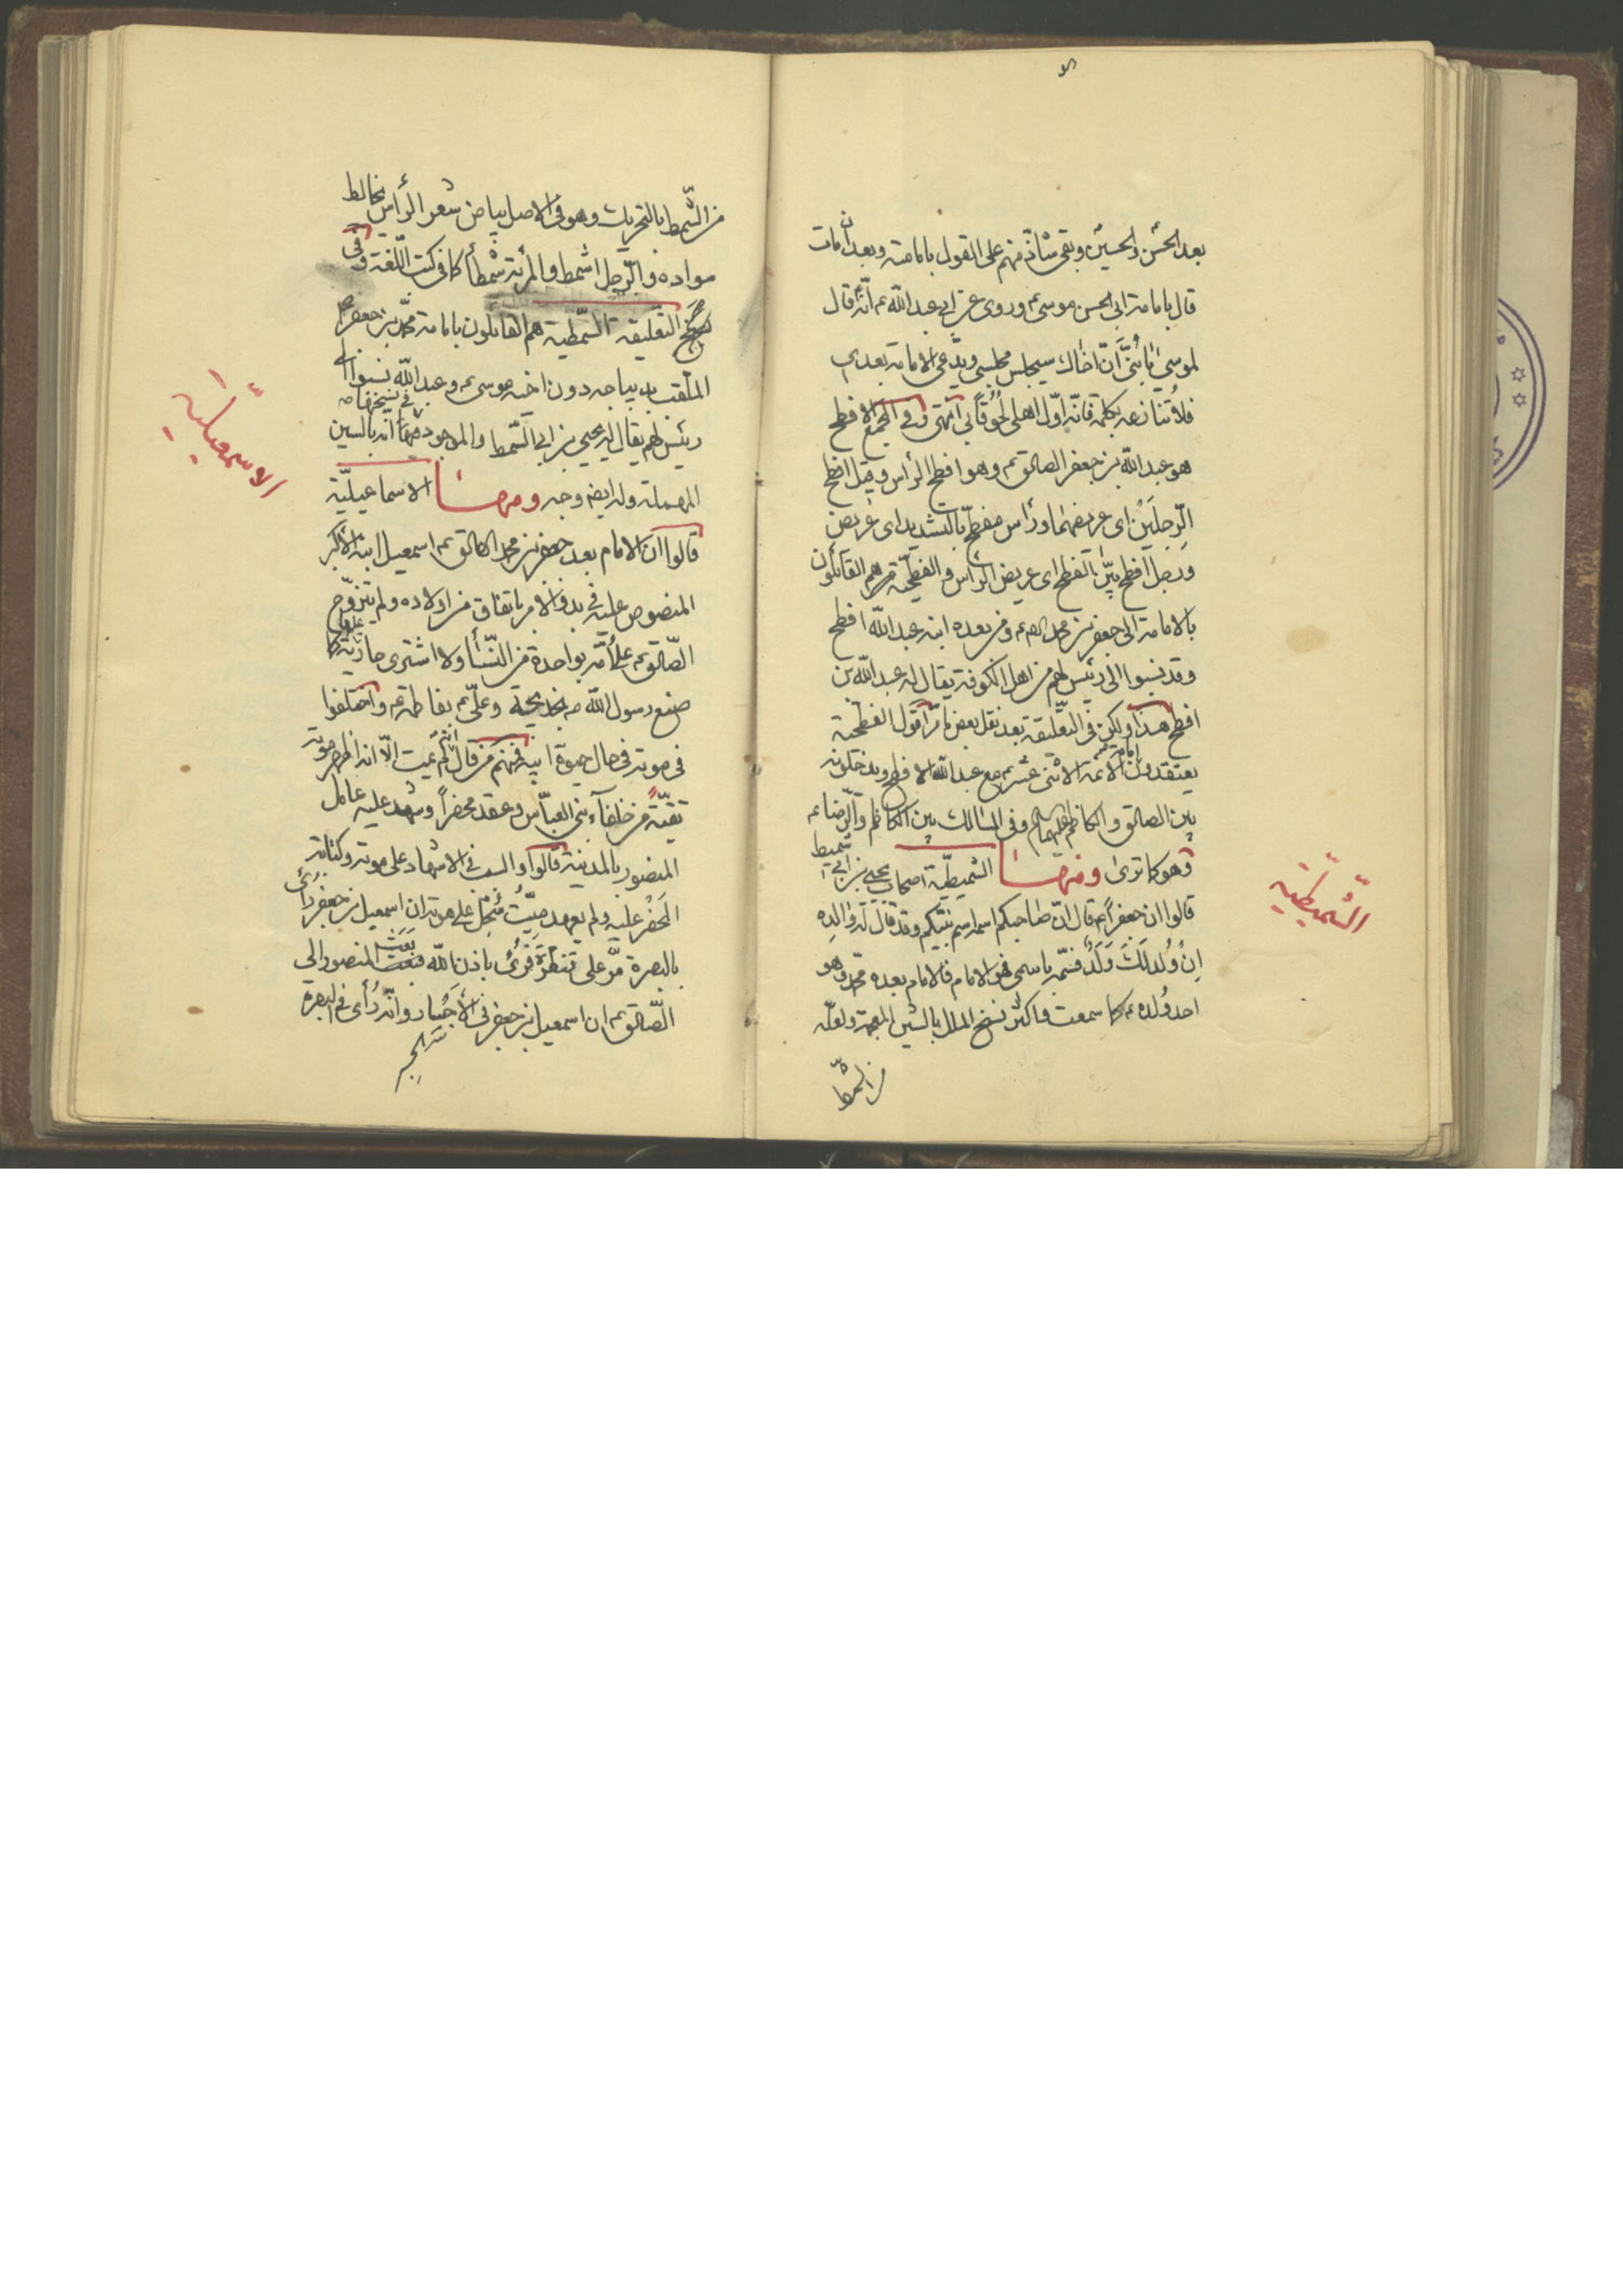 بعد الحسن والحسين ع وبقى شاذ منهم على القول بامامته وبعد ان مات
قال بامامة ابى الحسن موسى ع وروى عن ابى عبد الله ع انّه قال
لموسى يا بُنىّ انّ اخاك سيجلس مجلسى ويدّعى الامامة بعدى
فلا تنازعه بكلمة فانّه اوّل اهلى لُحُوقاً بى انتهى وفى المجمع الافطح
هو عبد الله بن جعفر الصادق ع وهو افطح الرأس وقيل افطح
الرّجلَين اى عريضهما ورأس مفطّح بالتشديد اى عريض
ورجل افطح بيّن الفطح اى عريض الرأس والفطحيّة هم القائلون
بالامامة الى جعفر بن محمد الصم ع ومن بعده ابنه عبد الله افطح
وقد نسبوا الى رئيس لهم من اهل الكوفة يقال له عبد الله بن
افطح هذا ولكن فى التعليقة بعد نقل بعض ما مرّ اقول الفطحية
يعتقدون امامة الائمة الاثنى عشر ع مع عبد الله الافطح ويدخلونه
بين الصادق والكاظم عليهما السلام وفى المسالك بين الكاظم والرّضا ع
وهو كما ترى ومنهـا الشميطيّة اصحاب يحيى بن ابى شميط
قالوا ان جعفراً ع قال انّ صاحبكم اسمه اسم نبيّكم وقد قال له والده
اِنْ وُلد لَكَ وَلَدٌ فسمّه باسمى فهو الامام فالامام بعده محمّد وهو
احد وُلده ع كما سمعت واكثر نسخ الملل بالشين المعجمة ولعلّه
من الشمط
الشّميطيّة
من الشّمط بالتحريك وهو فى الاصل بياض شعر الرأس يخالط
سواده والرّجل اشمط والمرئة شمطأ كما فى كتب اللّغة وفى
التعليقة السّمطيّة هم القائلون بامامة محمّد بن جعفر
الملقّب بديباجه دون اخيه موسى ع وعبد الله نسبوا الى
رئيس لهم يقال له يحيى بن ابى السّمط والموجود فى نسخها انّه بالسين
المهملة وله ايضا وجه ومنهـا الاسماعيليّة
قالوا ان الامام بعد جعفر بن محمد الصادق ع اسمعيل ابنه الاكبر
المنصوص عليه فى بدو الامر باتفاق من اولاده ولم يتزوّج
الصّادق ع على اُمّه بواحدة من النّسأ ولا اشترى جارية كما
صنع رسول الله ص بخديجة وعلى ع بفاطمة ع واختلفوا
فى موته فى حال حيوة ابيه فمنهم من قال انّه لم يمت الّا انه اظهر موته
تقيّة من خلفاء بنى العبّاس وعقد محضراً وشهد عليه عامل
المنصور بالمدينة قالوا والسـ فى الاشهاد على موته وكتابة
المَحضَر عليه ولم يعهد ميّت سُجل على موته ان اسمعيل بن جعفر رُأى
بالبصرة مرّ على فبرئ باذن الله بعث المنصور الى
الصّادق ع ان اسمعيل بن جعفر فى الأحيأ وانّه رُأى فى البصرة
الاسمعيليّة